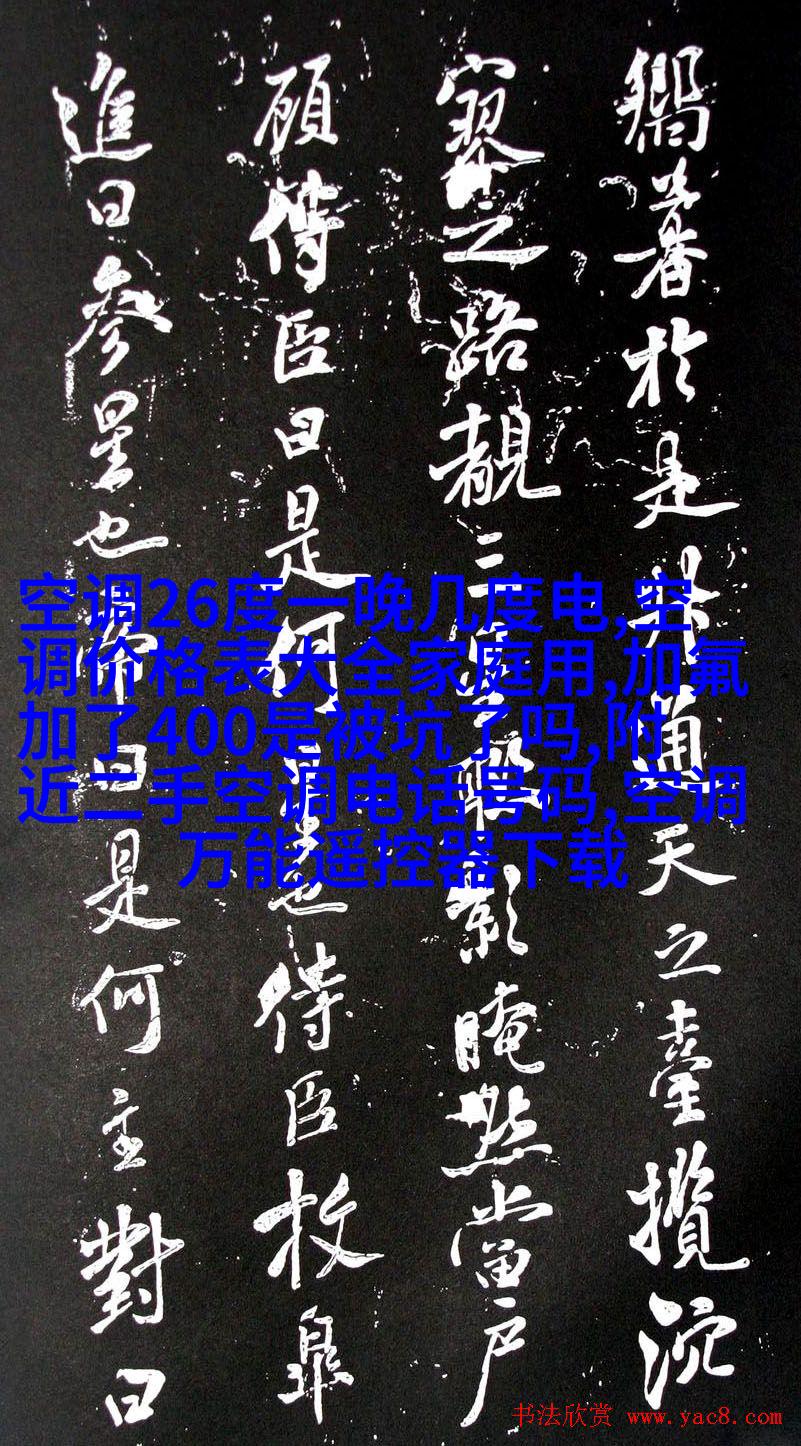 於是升通天之臺攬泬
寥之路覩三星聯影晻然當戶
顧侍臣曰是何星也侍臣枚皐
進曰參星也帝曰是何主對曰
空调26度一晚几度电,空
调价格表大全家庭用,加氟
加了400是被坑了吗,附
近二手空调电话号码,空调
万能遥控器下载
书法欣赏 www.yac8.com